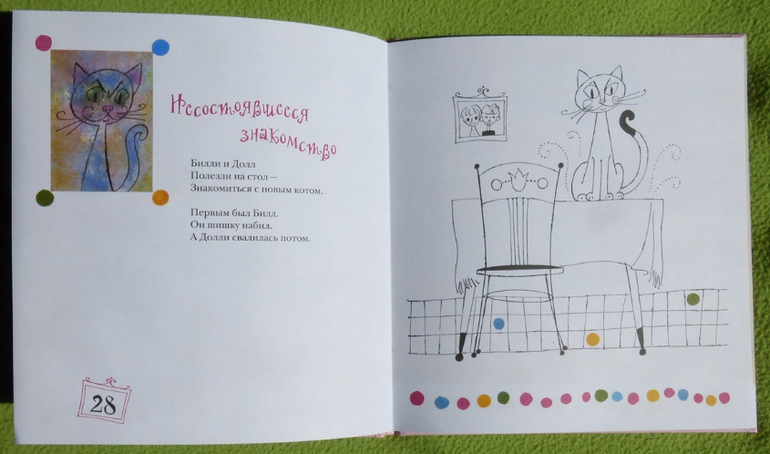 Несостоявшееся
знакомство
Билли и Долл
Полезли на стол –
Знакомиться с новым котом.
Первым был Билл.
Он шишку набил.
А Долли свалилась потом.
28